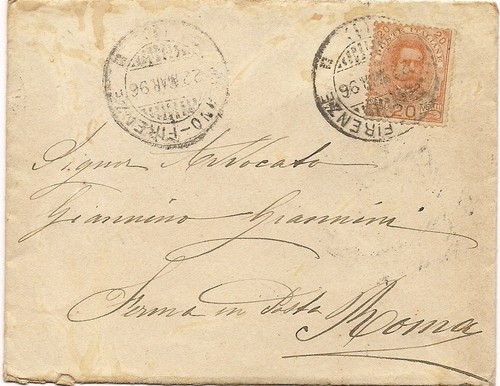 22 MAR 96
NO-FIRENZE
MAR 96
FIRENZE
20
20
Signor Avvocato
Giannino Giannini
Ferma in Posta Roma